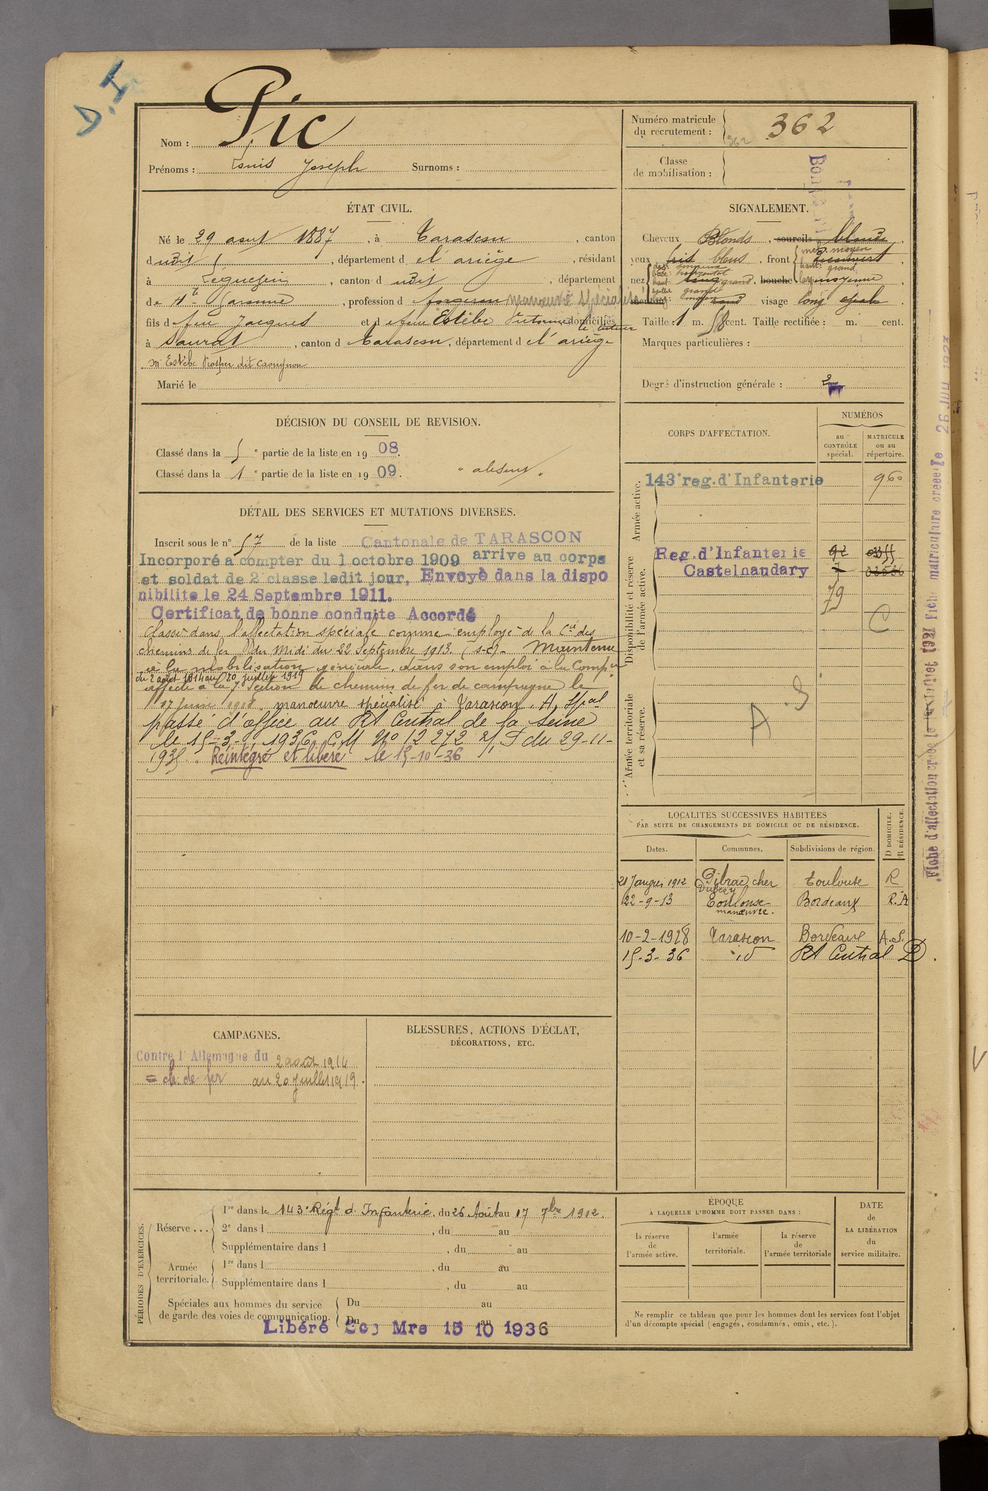 D.I.
Nom : Pic
Prénoms : Louis Joseph Surnoms :
Numéro matricule du recrutement : 362
362
Classe de mobilisation :
ÉTAT CIVIL.
Né le 29 août 1887, à Tarascon, canton
dudit, département de l'ariège, résidant
à Léguevin, canton dudit, département
de Hte Garonne, profession de forgeron manœuvre spécialisé
fils de feu Jacques et de feue Estèbe Victorine domiciliés
à Saurat, canton de Tarascon, département de l'ariège
Mr Estèbe
Marié le
SIGNALEMENT.
Cheveux Blonds, sourcils blonds,
yeux bleus, front
nez grand, bouche moyenne
visage long
Taille : 1 m. cent. Taille rectifiée : m. cent.
Marques particulières :
Degré d'instruction générale : 2
DÉCISION DU CONSEIL DE REVISION.
Classé dans la 5e partie de la liste en 1908.
Classé dans la 1e partie de la liste en 1909. "absent".
DÉTAIL DES SERVICES ET MUTATIONS DIVERSES.
Inscrit sous le n° 57 de la liste Cantonale de TARASCON
Incorporé à compter du 1 octobre 1909 arrive au corps
et soldat de 2e classe ledit jour, Envoyé dans la dispo
nibilité le 24 Septembre 1911.
Certificat de bonne conduite Accordé
Classé dans l'affectation spéciale comme employé de la Cie des
chemins de fer du Midi du 22 Septembre 1913. (s-c). Maintenu
à la mobilisation générale, dans son emploi à la Compie
du 2 août 1914 au 20 juillet 1919
affecté à la 7e Section de chemins de fer de campagne le
manœuvre spécialisé à Tarascon.
passé d'office au Rt Central de la Seine
le 15-3-1936 C.M No 12272 du 29-11-
1935. Réintégré et libéré le 15-10-36
CORPS D'AFFECTATION.
NUMÉROS
au CONTRÔLE spécial.
MATRICULE ou au répertoire.
Armée active.
143e reg. d'Infanterie 960
Disponibilité et réserve de l'armée active.
Reg. d'Infanterie
Castelnaudary
79
C
Armée territoriale et sa réserve.
A.S
LOCALITÉS SUCCESSIVES HABITÉES
PAR SUITE DE CHANGEMENTS DE DOMICILE OU DE RÉSIDENCE.
Dates. Communes. Subdivisions de région. D DOMICILE. R RÉSIDENCE.
21 Janvier 1912 Pibrac, chez Toulouse R
22-9-13 Toulouse Bordeaux R.A
manœuvre.
10-2-1928 Tarascon Bordeaux A.S.
15-3-36 id Rt Central D.
CAMPAGNES.
Contre l'Allemagne du 2 août 1914
= ch. de fer au 20 juillet 1919.
BLESSURES, ACTIONS D'ÉCLAT,
DÉCORATIONS, ETC.
PÉRIODES D'EXERCICES.
Réserve ...
1re dans le 143e Régt d'Infanterie, du 26 Août au 17 7bre 1912.
2e dans l , du au
Supplémentaire dans l , du au
Armée territoriale.
1re dans l , du au
Supplémentaire dans l , du au
Spéciales aux hommes du service de garde des voies de communication.
Du au
Du au
Libéré Mre 15 10 1936
ÉPOQUE
A LAQUELLE L'HOMME DOIT PASSER DANS :
la réserve de l'armée active.
l'armée territoriale.
la réserve de l'armée territoriale
DATE de LA LIBÉRATION du service militaire.
Ne remplir ce tableau que pour les hommes dont les services font l'objet
d'un décompte spécial (engagés, condamnés, omis, etc.).